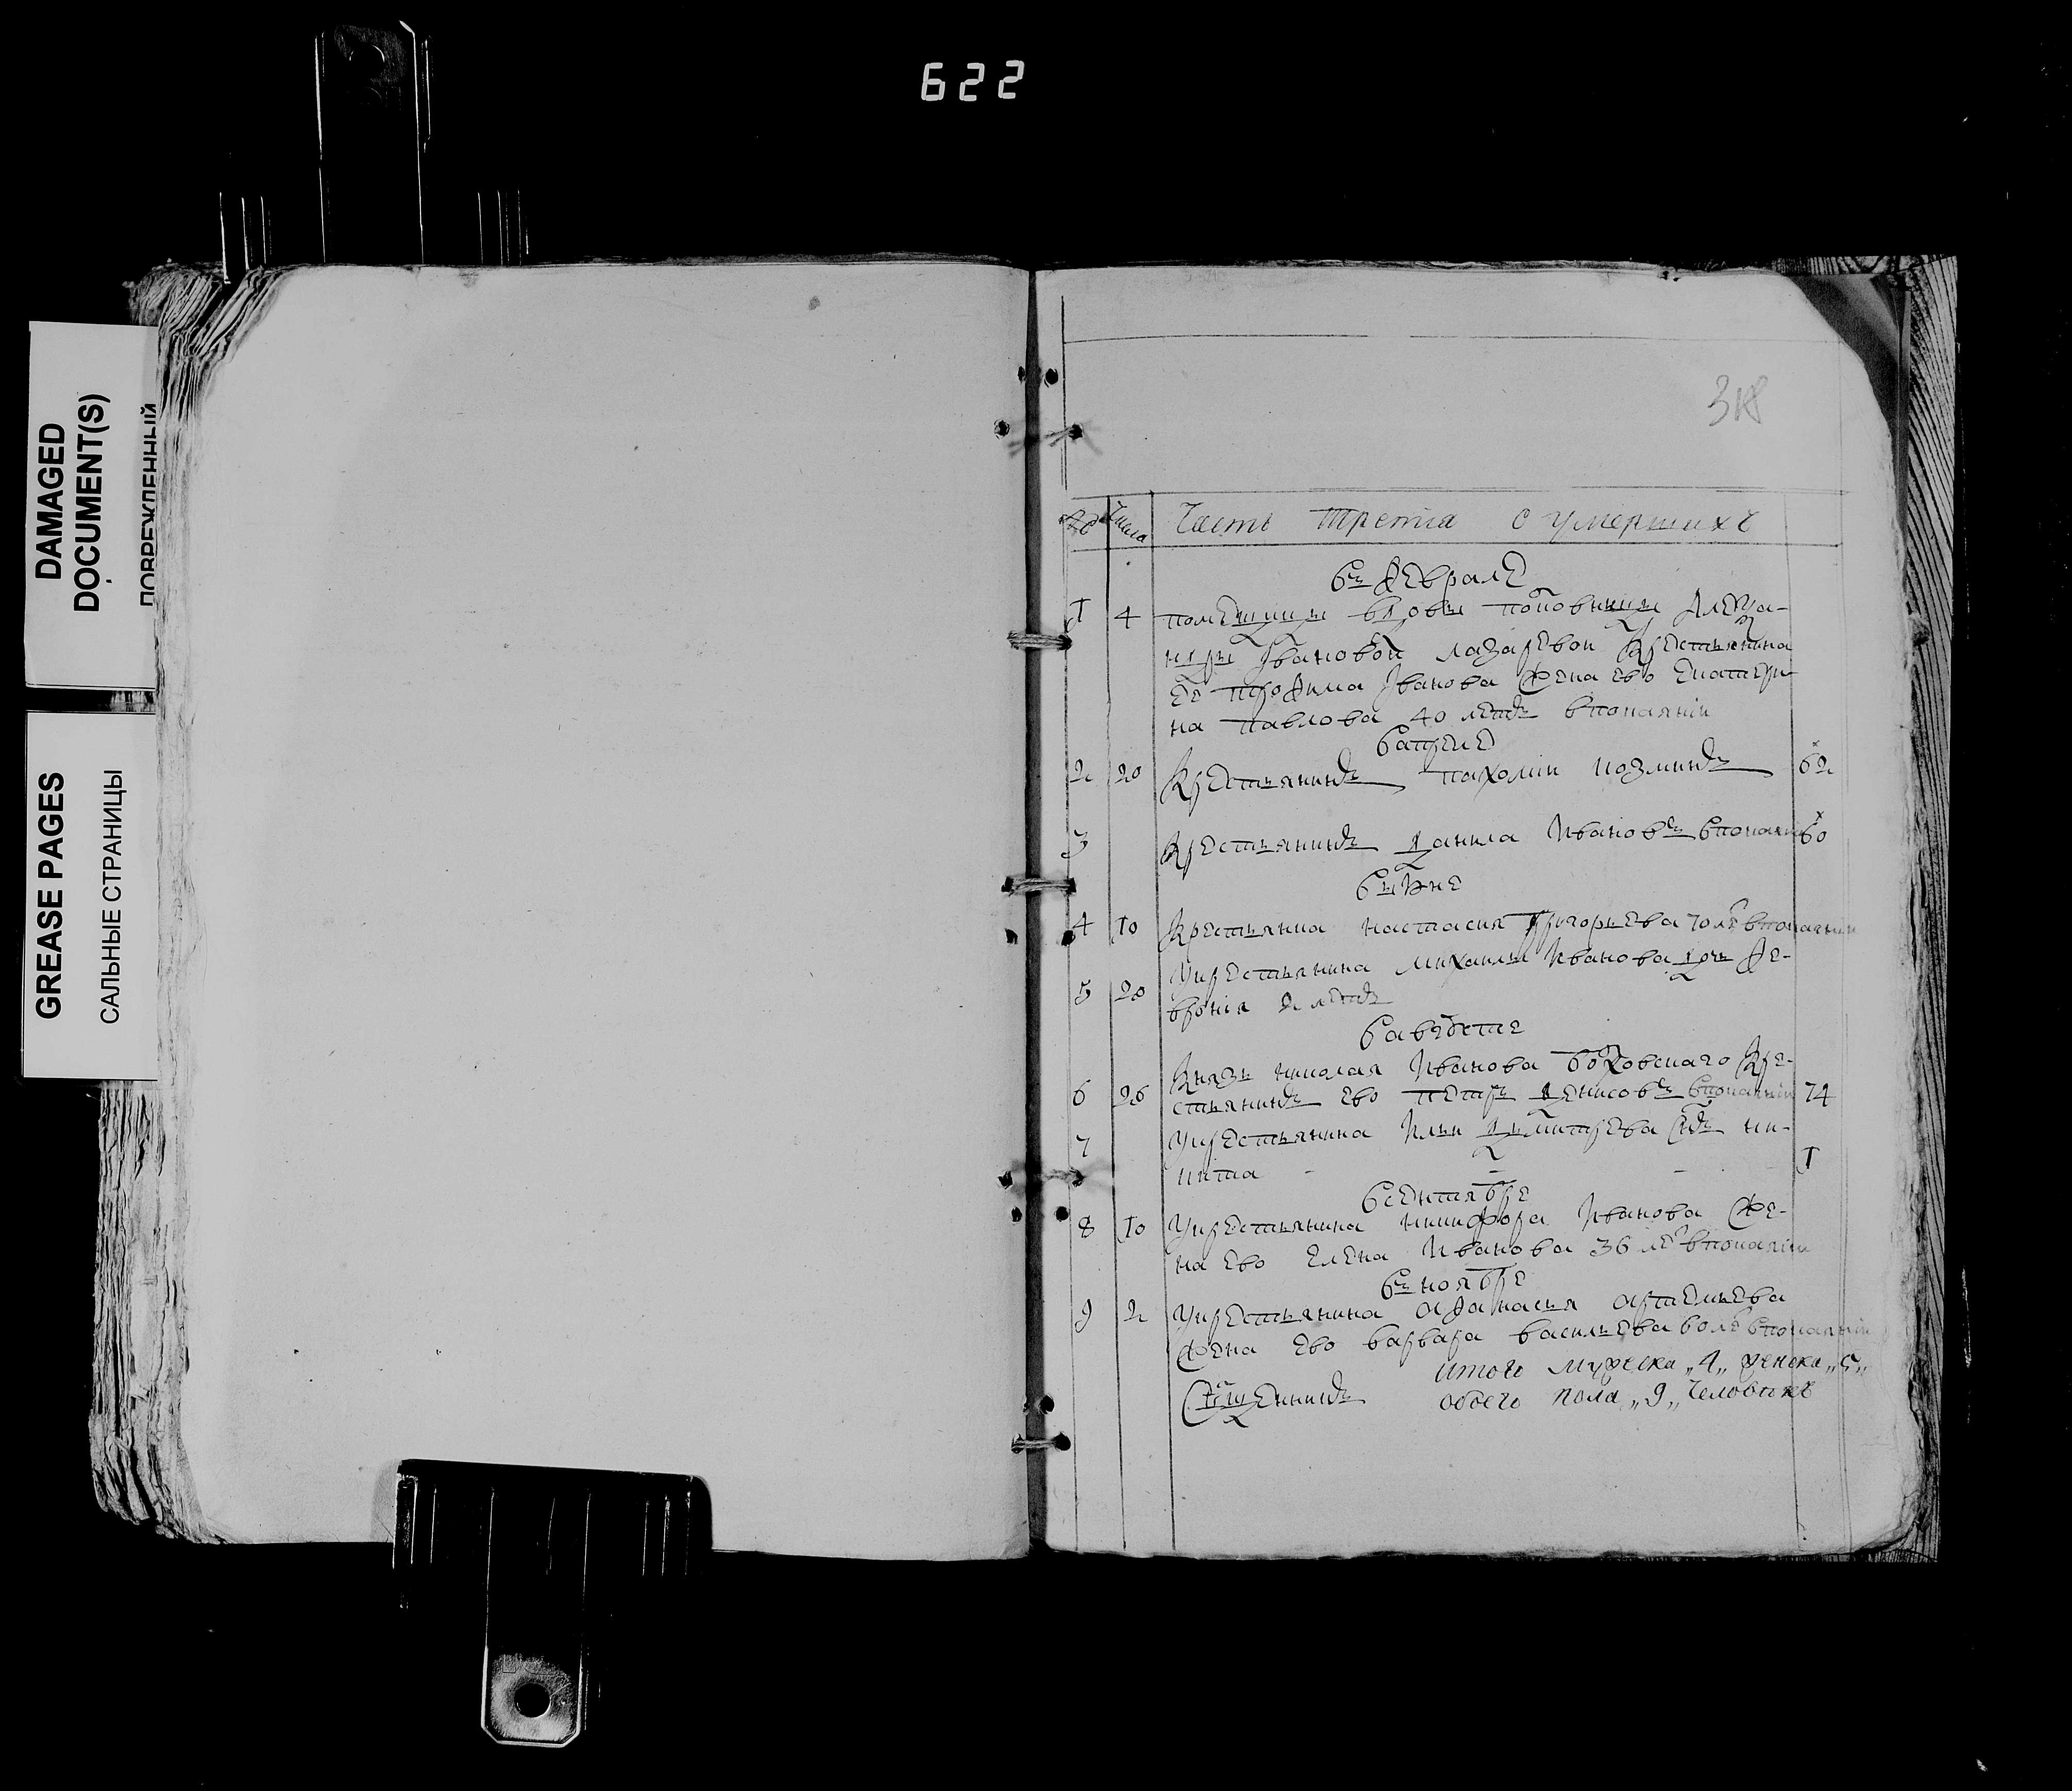 622
DAMAGED
DOCUMENT(S)
ПОВРЕЖДЕННЫЙ
GREASE PAGES
САЛЬНЫЕ СТРАНИЦЫ
318
№ Числа Часть третiа о умершихъ
въ февралѣ
1 4 помещицы вдовы поповны
Ивановой лазаревои крестьянина
ее трофима Iванова жена ево екатери-
на павлова 40 летъ впокаянiи
вапреле
2 20 Крестьянинъ пахомiи козминъ 62
3 Крестьянинъ данила Ивановъ впокаянiи 60
выюне
4 10 Крестьянка настасия григорьева 70 ле впокаянiи
5 20 укрестьянина михаилы Иванова дочь фе-
вронiя 2 летъ
вавгусте
Князь николая Иванова Кре-
6 26 стьянинъ ево петръ денисовъ впокаянiи 74
7 укрестьянина Ильи дьмитрева сынъ ни-
кита - - - 1
всентябре
8 10 укрестьянина никифора Иванова же-
на ево елена Иванова 36 ле впокаянiи
въ ноябре
9 2 укрестьянина афанасья артемьева
жена ево варвара васильева 60 ле впокаянiи
итого мужеска „4„ женска „5„
Сщенникъ обоего пола „9„ человѣкъ